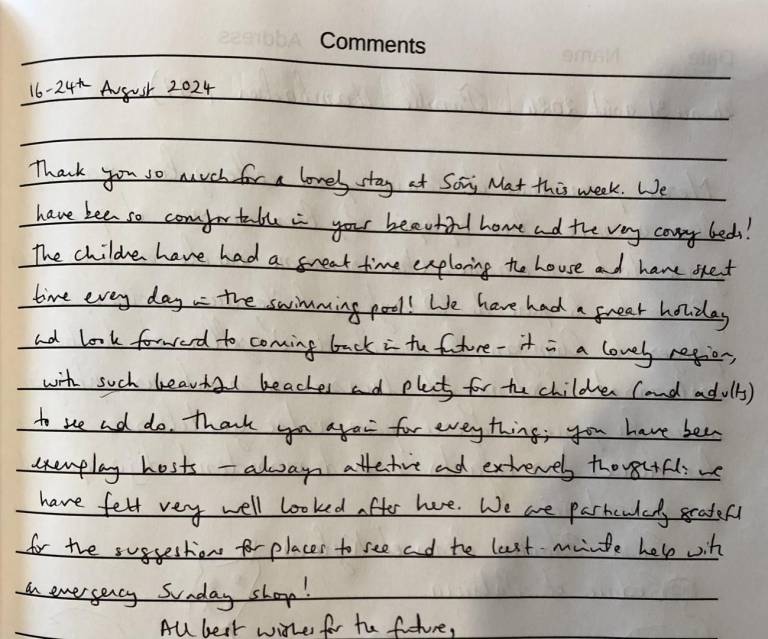 Comments
16-24th August 2024
Thank you so much for a lovely stay at Mat this week. We
have been so comfortable in your beautiful home and the very comfy beds!
The children have had a great time exploring the house and have spent
time every day in the swimming pool! We have had a great holiday
and look forward to coming back in the future - it is a lovely region,
with such beautiful beaches and plenty for the children (and adults)
to see and do. Thank you again for everything; you have been
exemplary hosts - always attentive and extremely thoughtful: we
have felt very well looked after here. We are particularly grateful
for the suggestions for places to see and the last-minute help with
an emergency Sunday shop!
All best wishes for the future,